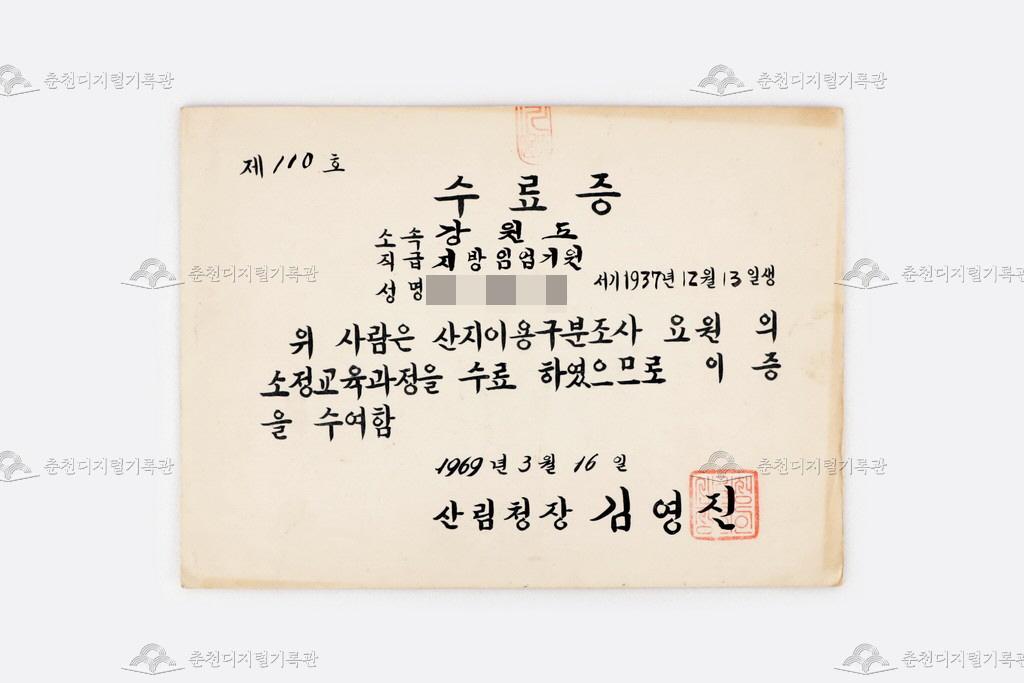 춘천디지털기록관
춘천디지털기록관
제 110 호
수료증
소속 강원도
직급 지방임업기원
춘천디지털기록관
춘천디지털기록관
성명
서기 1937년 12월 13일생
위 사람은 산지이용구분조사 요원 의
소정교육과정을 수료 하였으므로 이 증
을 수여함
춘천디지털기록관
춘천디지털기록관
1969년 3월 16일
산림청장 김영진
춘천디지털기록관
춘천디지털기록관